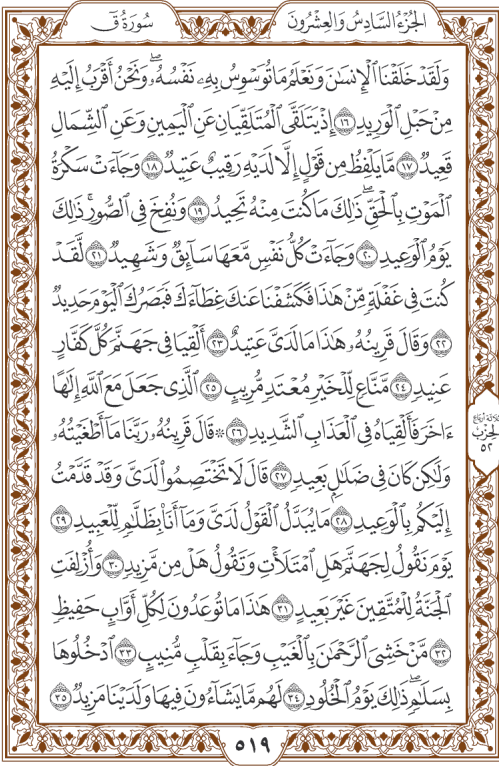 الجُزْءُ السَّادِسُ وَالعِشْرُونَ سُورَةُ قٓ
وَلَقَدْ خَلَقْنَا ٱلْإِنسَٰنَ وَنَعْلَمُ مَا تُوَسْوِسُ بِهِۦ نَفْسُهُۥۖ وَنَحْنُ أَقْرَبُ إِلَيْهِ
مِنْ حَبْلِ ٱلْوَرِيدِ ١٦ إِذْ يَتَلَقَّى ٱلْمُتَلَقِّيَانِ عَنِ ٱلْيَمِينِ وَعَنِ ٱلشِّمَالِ
قَعِيدٌ ١٧ مَّا يَلْفِظُ مِن قَوْلٍ إِلَّا لَدَيْهِ رَقِيبٌ عَتِيدٌ ١٨ وَجَآءَتْ سَكْرَةُ
ٱلْمَوْتِ بِٱلْحَقِّۖ ذَٰلِكَ مَا كُنتَ مِنْهُ تَحِيدُ ١٩ وَنُفِخَ فِى ٱلصُّورِۚ ذَٰلِكَ
يَوْمُ ٱلْوَعِيدِ ٢٠ وَجَآءَتْ كُلُّ نَفْسٍ مَّعَهَا سَآئِقٌ وَشَهِيدٌ ٢١ لَّقَدْ
كُنتَ فِى غَفْلَةٍ مِّنْ هَٰذَا فَكَشَفْنَا عَنكَ غِطَآءَكَ فَبَصَرُكَ ٱلْيَوْمَ حَدِيدٌ
٢٢ وَقَالَ قَرِينُهُۥ هَٰذَا مَا لَدَىَّ عَتِيدٌ ٢٣ أَلْقِيَا فِى جَهَنَّمَ كُلَّ كَفَّارٍ
عَنِيدٍ ٢٤ مَّنَّاعٍ لِّلْخَيْرِ مُعْتَدٍ مُّرِيبٍ ٢٥ ٱلَّذِى جَعَلَ مَعَ ٱللَّهِ إِلَٰهًا
ءَاخَرَ فَأَلْقِيَاهُ فِى ٱلْعَذَابِ ٱلشَّدِيدِ ٢٦ ۞ قَالَ قَرِينُهُۥ رَبَّنَا مَآ أَطْغَيْتُهُۥ
وَلَٰكِن كَانَ فِى ضَلَٰلٍۭ بَعِيدٍ ٢٧ قَالَ لَا تَخْتَصِمُوا۟ لَدَىَّ وَقَدْ قَدَّمْتُ
إِلَيْكُم بِٱلْوَعِيدِ ٢٨ مَا يُبَدَّلُ ٱلْقَوْلُ لَدَىَّ وَمَآ أَنَا۠ بِظَلَّٰمٍ لِّلْعَبِيدِ ٢٩
يَوْمَ نَقُولُ لِجَهَنَّمَ هَلِ ٱمْتَلَأْتِ وَتَقُولُ هَلْ مِن مَّزِيدٍ ٣٠ وَأُزْلِفَتِ
ٱلْجَنَّةُ لِلْمُتَّقِينَ غَيْرَ بَعِيدٍ ٣١ هَٰذَا مَا تُوعَدُونَ لِكُلِّ أَوَّابٍ حَفِيظٍ
٣٢ مَّنْ خَشِىَ ٱلرَّحْمَٰنَ بِٱلْغَيْبِ وَجَآءَ بِقَلْبٍ مُّنِيبٍ ٣٣ ٱدْخُلُوهَا
بِسَلَٰمٍۖ ذَٰلِكَ يَوْمُ ٱلْخُلُودِ ٣٤ لَهُم مَّا يَشَآءُونَ فِيهَا وَلَدَيْنَا مَزِيدٌ ٣٥
ثلاثة أرباع
الحِزْب
٥٢
٥١٩